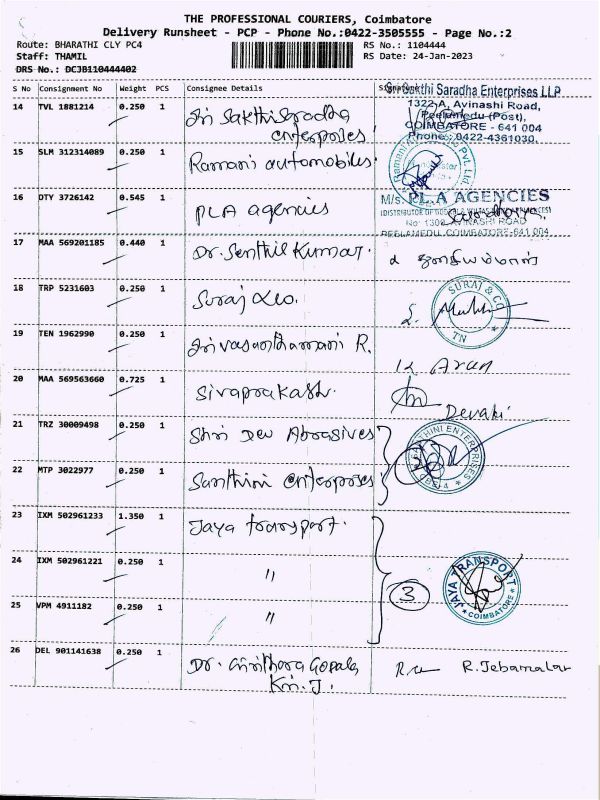 THE PROFESSIONAL COURIERS, Coimbatore
Delivery Runsheet - PCP - Phone No.:0422-3505555 - Page No.:2
Route: BHARATHI CLY PC4
RS No.: 1104444
Staff: THAMIL
RS Date: 24-Jan-2023
DRS No.: DCJB110444402
S No Consignment No Weight PCS Consignee Details
14 TVL 1881214 0.250 1 Sri Sakthi Saradha
enterprises
Sri Sakthi Saradha Enterprises LLP
1322 A, Avinashi Road,
Peelamedu (Post),
COIMBATORE - 641 004
Phone: 0422-4361030.
15 SLM 312314089 0.250 1 Ramani automobiles
16 DTY 3726142 0.545 1 PLA agencies
M/s. P.L.A AGENCIES
No: 130
AVINASHI ROAD
PEELAMEDU, COIMBATORE-641 004
17 MAA 569201185 0.440 1 Dr. Senthil Kumar.
18 TRP 5231603 0.250 1 Suraj &co.
SURAJ & CO
TN
19 TEN 1962990 0.250 1 Srivasanthamani R.
20 MAA 569563660 0.725 1 Sivaprakash.
Devaki
21 TRZ 30009498 0.250 1 Shri Dev Abrasives
22 MTP 3022977 0.250 1 Santhini enterprises
ENTERPRISES
23 IXM 502961233 1.350 1 Jaya transport.
24 IXM 502961221 0.250 1 "
3
JAYA TRANSPORT
COIMBATORE
25 VPM 4911182 0.250 1 "
26 DEL 901141638 0.250 1 Dr. Girithara Gopala
Kri. J.
R. Jebamalar